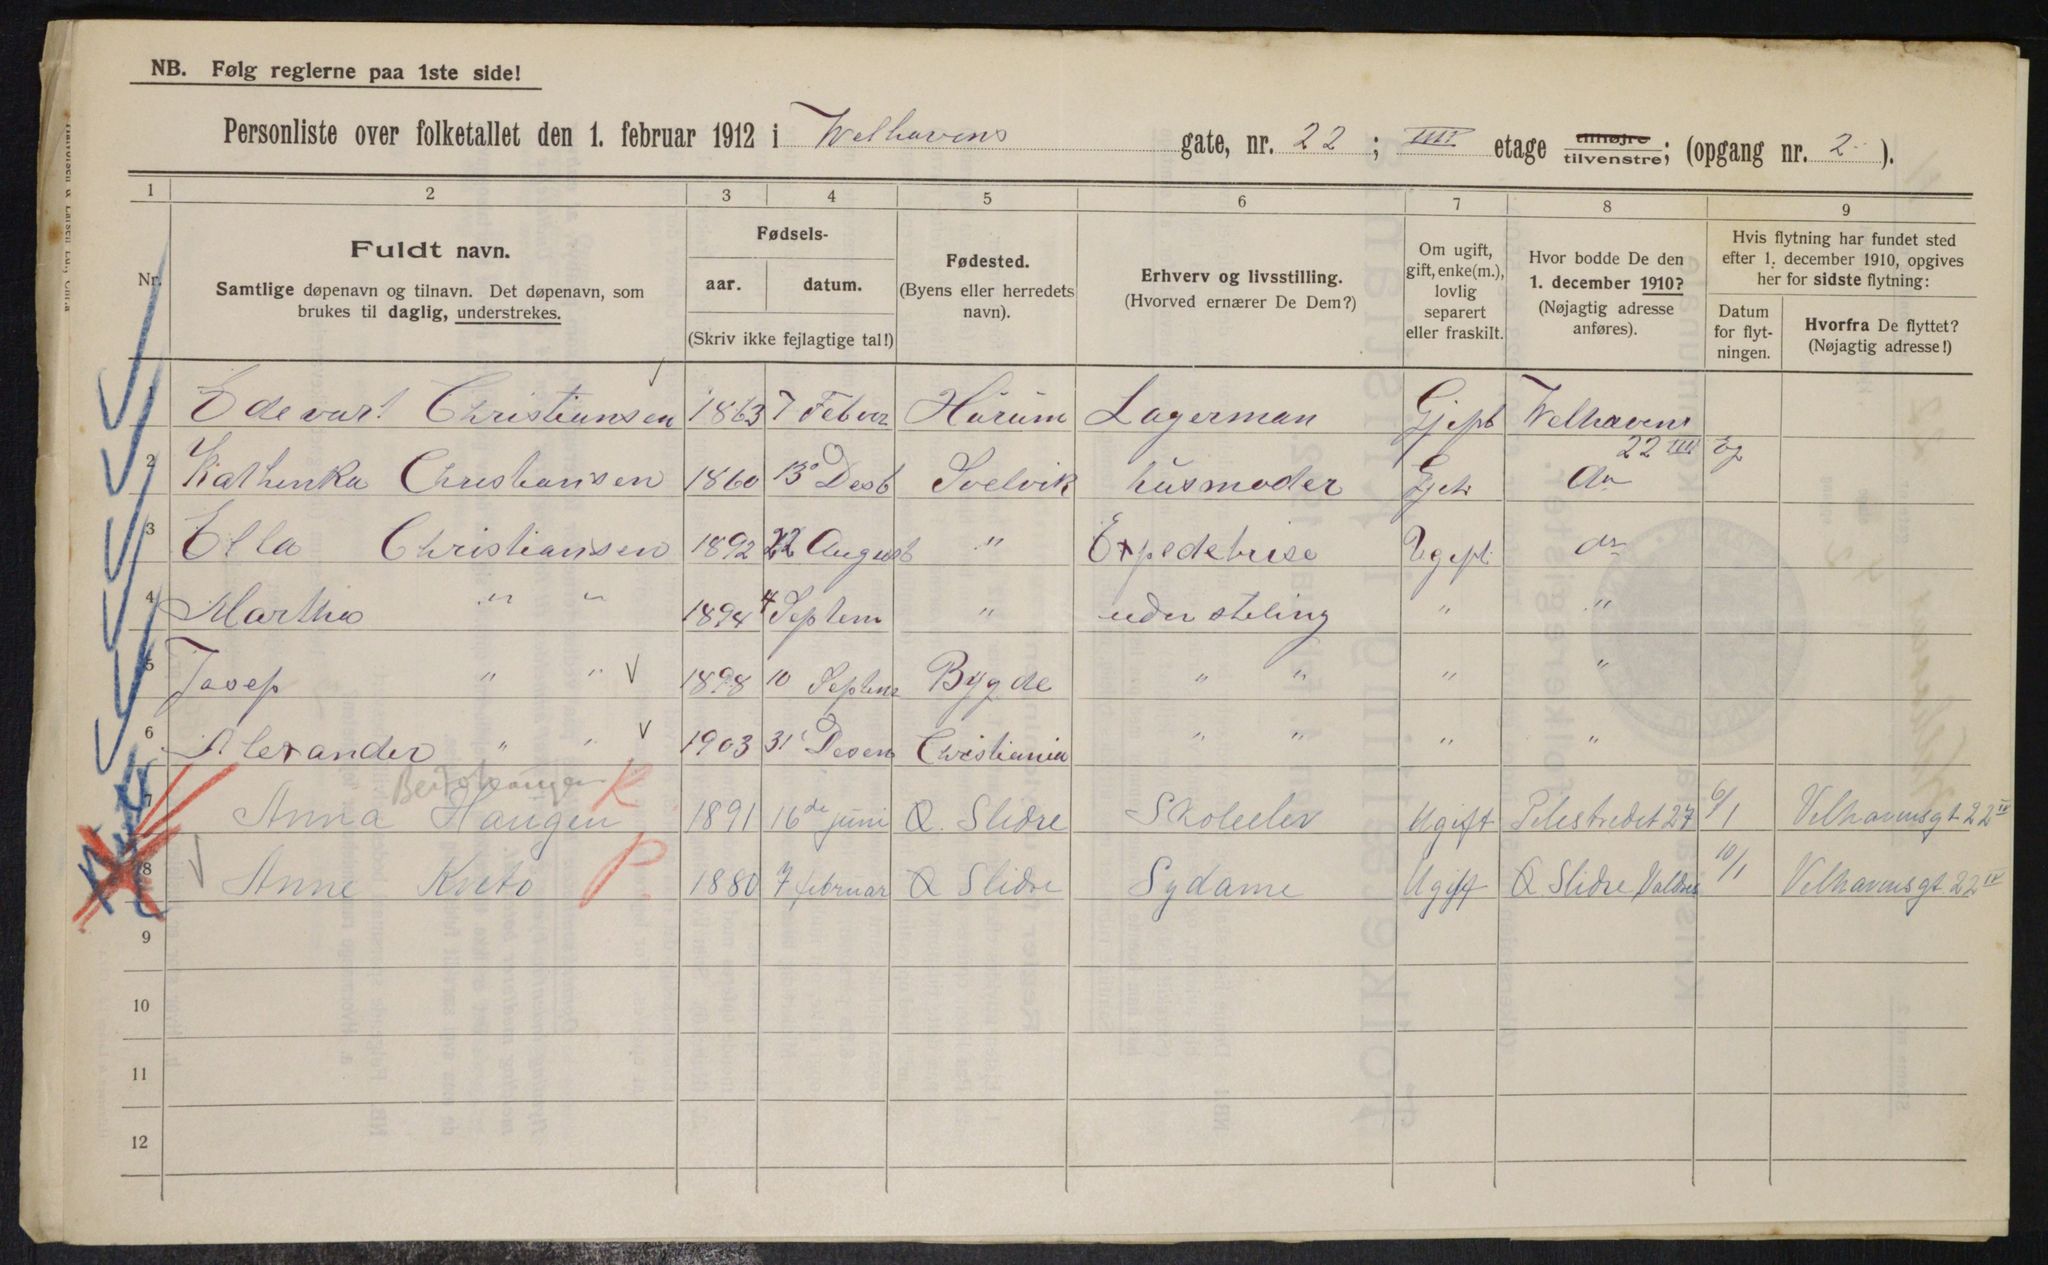 NB. Følg reglerne paa 1ste side!
Personliste over folketallet den 1. februar 1912 i Welhavens gate, nr. 22 ; IIII etage tilhøjre tilvenstre; (opgang nr. 2 ).
1 2 3 4 5 6 7 8 9
Nr. Fuldt navn. Samtlige døpenavn og tilnavn. Det døpenavn, som brukes til daglig, understrekes.
Fødsels-
aar. datum.
(Skriv ikke fejlagtige tal!)
Fødested. (Byens eller herredets navn).
Erhverv og livsstilling. (Hvorved ernærer De Dem?)
Om ugift, gift, enke(m.), lovlig separert eller fraskilt.
Hvor bodde De den 1. december 1910? (Nøjagtig adresse anføres).
Hvis flytning har fundet sted efter 1. december 1910, opgives her for sidste flytning:
Datum for flyt- ningen.
Hvorfra De flyttet? (Nøjagtig adresse!)
1 Edevart Christiansen 1863 7 Febor Hürum Lagerman Gjept Welhavens 22 IIII Eg
2 Kathenka Christiansen 1860 13 Desb Svelvik husmoder Gjet do
3 Ella Christiansen 1892 22 August " Expedetrise Ugept do
4 Martha " " 1894 4 Septem " uden steling " "
5 Josep " " 1898 10 Septem Bygde " " " "
6 Alexander " " 1903 31 Desem Christiania " " " "
7 Anna Haugen R 1891 16de juni Ø. Slidre Skoleelev Ugift Pilestredet 27 6/1 Velhavensgt 22 IV
8 Anne Kveto P. 1880 7 februar Ø Slidre Sydame Ugift Ø. Slidre Valdres 10/1 Velhavensgt 22 IV
9
10
11
12